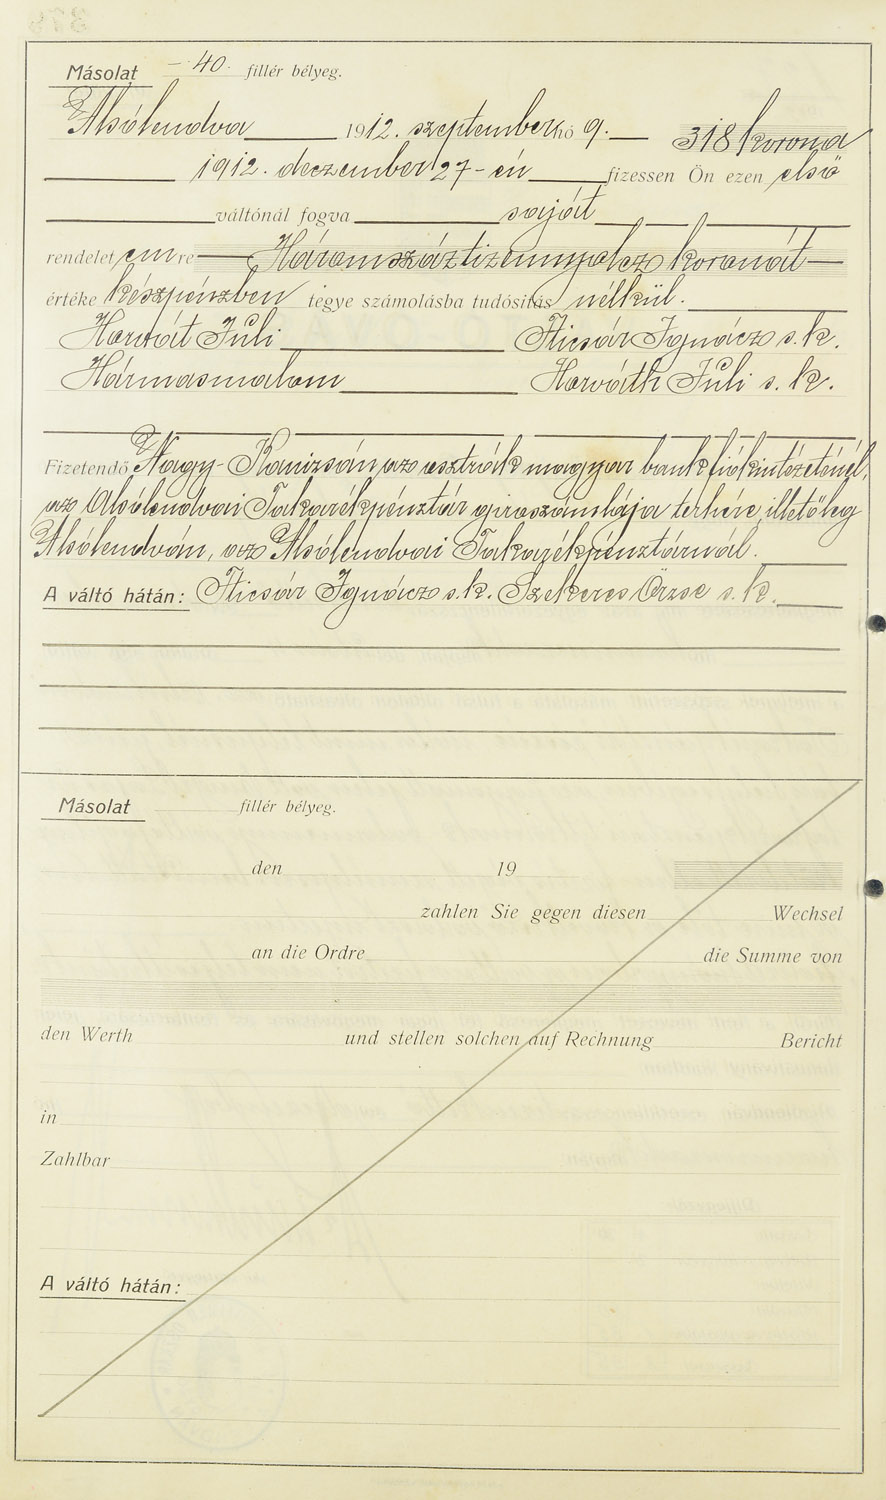 Másolat – 40. fillér bélyeg.
Alsólendva 1912. szeptember hó 9. 318 korona
1912. deczember 27-én fizessen Ön ezen első
váltónál fogva saját
rendeletemre Háromszáztizennyolcz koronát
értéke készpénzben tegye számolásba tudósítás nélkül.
Horvát Juli Fticsár Ignácz s. k.
Hármasmalom Horváth Juli s. k.
Fizetendő Nagy-Kanizsán az osztrák magyar bank fiókintézeténél,
az Alsólendvai Takarékpénztár girószámlája terhére, illetőleg
Alsólendván, az Alsólendvai Takarékpénztárnál.
A váltó hátán: Fticsár Ignácz s. k. Szekeres Örzse s. k.
Másolat fillér bélyeg.
den 19
zahlen Sie gegen diesen Wechsel
an die Ordre die Summe von
den Werth und stellen solchen auf Rechnung Bericht
in
Zahlbar
A váltó hátán: